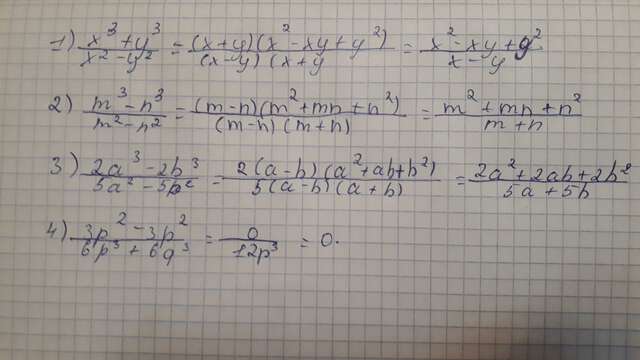 1) (x³ + y³)/(x² - y²) = ((x+y)(x² - xy + y²))/((x-y)(x+y) = (x² - xy + y²)/(x - y)
2) (m³ - n³)/(m² - n²) = ((m-n)(m² + mn + n²))/((m-n)(m+n)) = (m² + mn + n²)/(m + n)
3) (2a³ - 2b³)/(5a² - 5b²) = (2(a-b)(a² + ab + b²))/(5(a-b)(a+b)) = (2a² + 2ab + 2b²)/(5a + 5b)
4) (3p² - 3p²)/(6p³ + 6q³) = 0/(12p³) = 0.